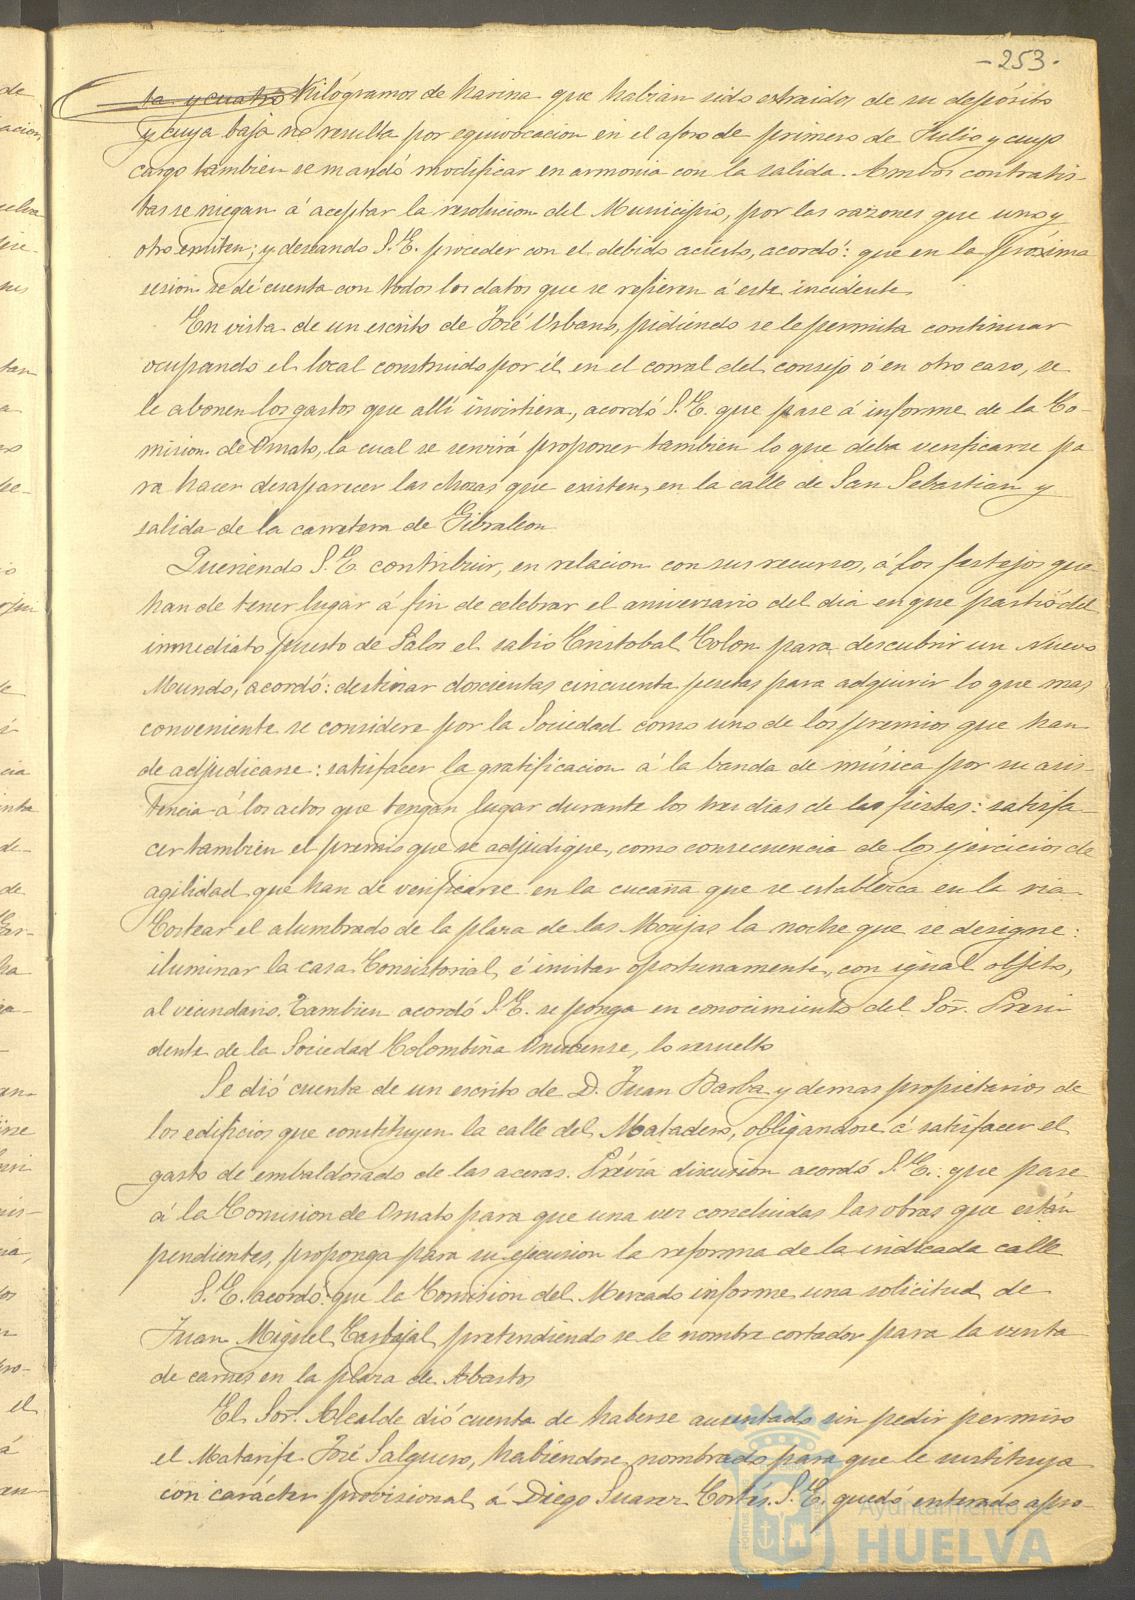 - 253 -
ta y cuatro Kilógramos de harina que habian sido extraidos de su depósito
y cuya baja no resulta por equivocacion en el aforo de primero de Julio y cuyo
cargo tambien se mandó modificar en armonia con la salida. Ambos contratis-
tas se niegan á aceptar la resolucion del Municipio, por las razones que uno y
otro emiten; y deseando S.E. proceder con el debido acierto, acordó: que en la próxima
sesion se dé cuenta con todos los datos que se refieren á este incidente.
En vista de un escrito de José Urbano, pidiendo se le permita continuar
ocupando el local construido por él en el corral del consejo ó en otro caso, se
le abonen los gastos que allí invirtiera, acordó S.E. que pase á informe de la Co-
mision de Ornato, la cual se servirá proponer tambien lo que deba verificarse pa
ra hacer desaparecer las chozas que existen, en la calle de San Sebastian y
salida de la carretera de Gibraleon.
Queriendo S.E. contribuir, en relacion con sus recursos, á los festejos que
han de tener lugar á fin de celebrar el aniversario del dia en que partió del
inmediato puerto de Palos el sabio Cristobal Colon para descubrir un Nuevo
Mundo, acordó: destinar doscientas cincuenta pesetas para adquirir lo que mas
conveniente se considere por la Sociedad como uno de los premios que han
de adjudicarse: satisfacer la gratificacion á la banda de música por su asis-
tencia á los actos que tengan lugar durante los tres dias de las fiestas: satisfa-
cer tambien el premio que se adjudique, como consecuencia de los ejercicios de
agilidad que han de verificarse en la cucaña que se establezca en la ria.
Costear el alumbrado de la plaza de las Monjas la noche que se designe:
iluminar la casa Consistorial é invitar oportunamente, con igual objeto,
al vecindario. Tambien acordó S.E. se ponga en conocimiento del Sor. Presi
dente de la Sociedad Colombina Onubense, lo resuelto
Se dió cuenta de un escrito de D. Juan Barba y demas propietarios de
los edificios que constituyen la calle del Matadero, obligandose á satisfacer el
gasto de embaldosado de las aceras. Prévia discusion acordó S.E.: que pase
á la Comision de Ornato para que una vez concluidas las obras que están
pendientes, proponga para su ejecusion la reforma de la indicada calle
S.E. acordó: que la Comision del Mercado informe una solicitud de
Juan Miguel Carbajal pretendiendo se le nombre cortador para la venta
de carnes en la plaza de Abastos
El Sor. Alcalde dió cuenta de haberse ausentado sin pedir permiso
el Matarife José Salguero, habiéndose nombrado para que le sustituya
con carácter provisional á Diego Suarez Cortes. S.E. quedó enterado apro-
Ayuntamiento de
HUELVA